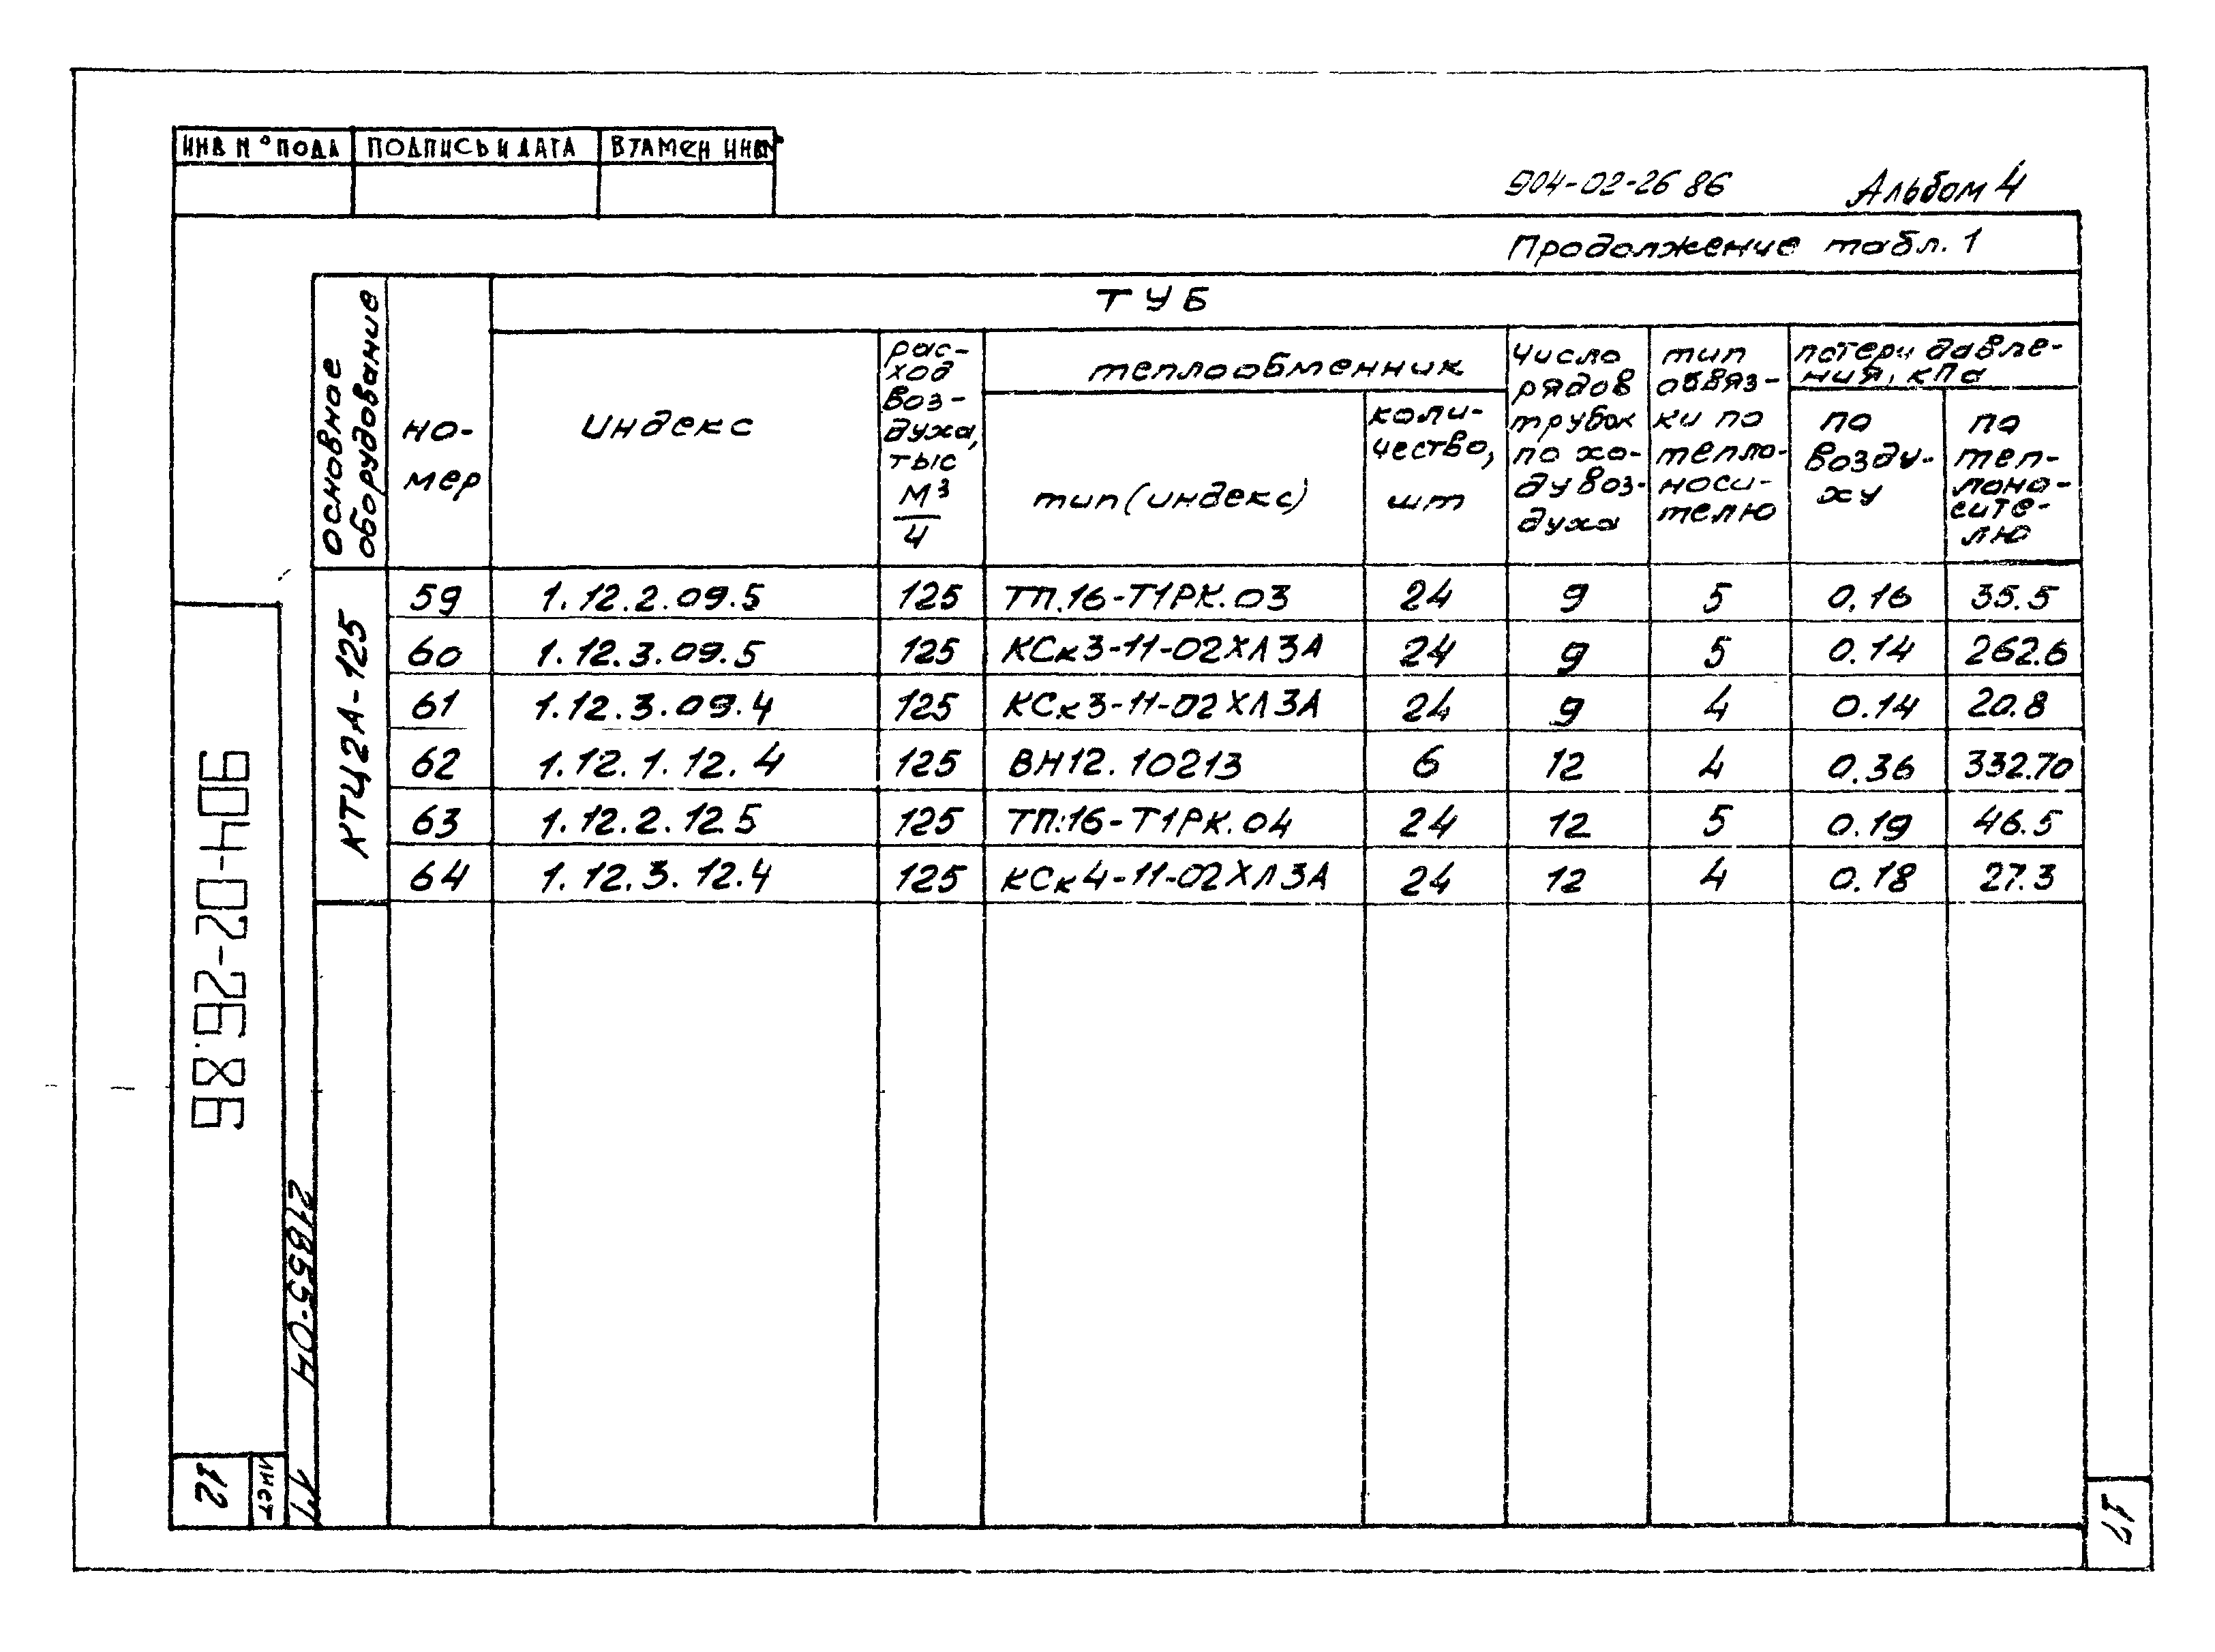 ИНВ N° ПОДЛ ПОДПИСЬ И ДАТА ВТАМЕН ИНВ N°
904-02-26 86 Альбом 4
Продолжение табл. 1
Основное оборудование
но-
мер
ТУБ
индекс
рас-
ход
воз-
духа,
тыс
м³
ч
теплообменник
тип (индекс)
коли-
чество,
шт
число
рядов
трубок
по хо-
ду воз-
духа
тип
обвяз-
ки по
тепло-
носи-
телю
потери давле-
ния, кПа
по
возду-
ху
по
теп-
лоно-
сите-
лю
КТЦ2А-125
59 1.12.2.09.5 125 ТП.16-Т1РК.03 24 9 5 0,16 35.5
60 1.12.3.09.5 125 КСк3-11-02ХЛ3А 24 9 5 0.14 262.6
61 1.12.3.09.4 125 КСк3-11-02ХЛ3А 24 9 4 0.14 20.8
62 1.12.1.12.4 125 ВН12.10213 6 12 4 0.36 332.70
63 1.12.2.12.5 125 ТП.16-Т1РК.04 24 12 5 0.19 46.5
64 1.12.3.12.4 125 КСк4-11-02ХЛ3А 24 12 4 0.18 27.3
904-02-26.86
21855-04 17
Лист
12
17